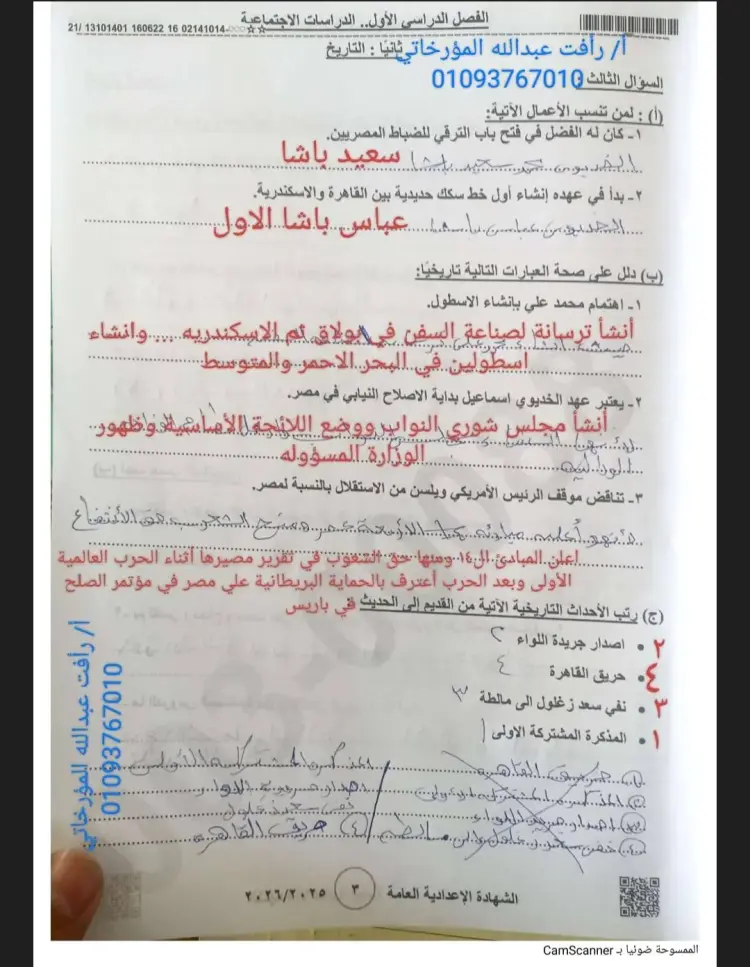 الفصل الدراسي الأول.. الدراسات الاجتماعية
21/ 13101401 160622 16 02141014-
أ/ رأفت عبدالله المؤرخاتي
ثانيًا : التاريخ
01093767010
السؤال الثالث
(أ) : لمن تنسب الأعمال الآتية:
١- كان له الفضل في فتح باب الترقي للضباط المصريين.
سعيد باشا
الخديوي محمد سعيد باشا
٢- بدأ في عهده إنشاء أول خط سكك حديدية بين القاهرة والاسكندرية.
عباس باشا الاول
الخديوي عباس باشا
(ب) دلل على صحة العبارات التالية تاريخيًا:
١- اهتمام محمد علي بإنشاء الاسطول.
أنشأ ترسانة لصناعة السفن في بولاق ثم الاسكندريه ... وانشاء
اسطولين في البحر الاحمر والمتوسط
٢- يعتبر عهد الخديوي اسماعيل بداية الاصلاح النيابي في مصر.
أنشأ مجلس شوري النواب ووضع اللائحة الأساسية وظهور
الوزارة المسؤوله
٣- تناقض موقف الرئيس الأمريكي ويلسن من الاستقلال بالنسبة لمصر.
اعلن المبادئ ال١٤ ومنها حق الشعوب في تقرير مصيرها أثناء الحرب العالمية
الأولى وبعد الحرب أعترف بالحماية البريطانية علي مصر في مؤتمر الصلح
في باريس
(ج) رتب الأحداث التاريخية الآتية من القديم إلى الحديث
٢ • اصدار جريدة اللواء ٢
٤ • حريق القاهرة ٤
٣ • نفي سعد زغلول الى مالطة ٣
١ • المذكرة المشتركة الاولى ١
المذكرة المشتركة الأولى
اصدار جريدة اللواء
نفي سعد زغلول
(٤) حريق القاهرة
أ/ رأفت عبدالله المؤرخاتي
01093767010
الشهادة الإعدادية العامة
٣
٢٠٢٦/٢٠٢٥
الممسوحة ضوئيا بـ CamScanner